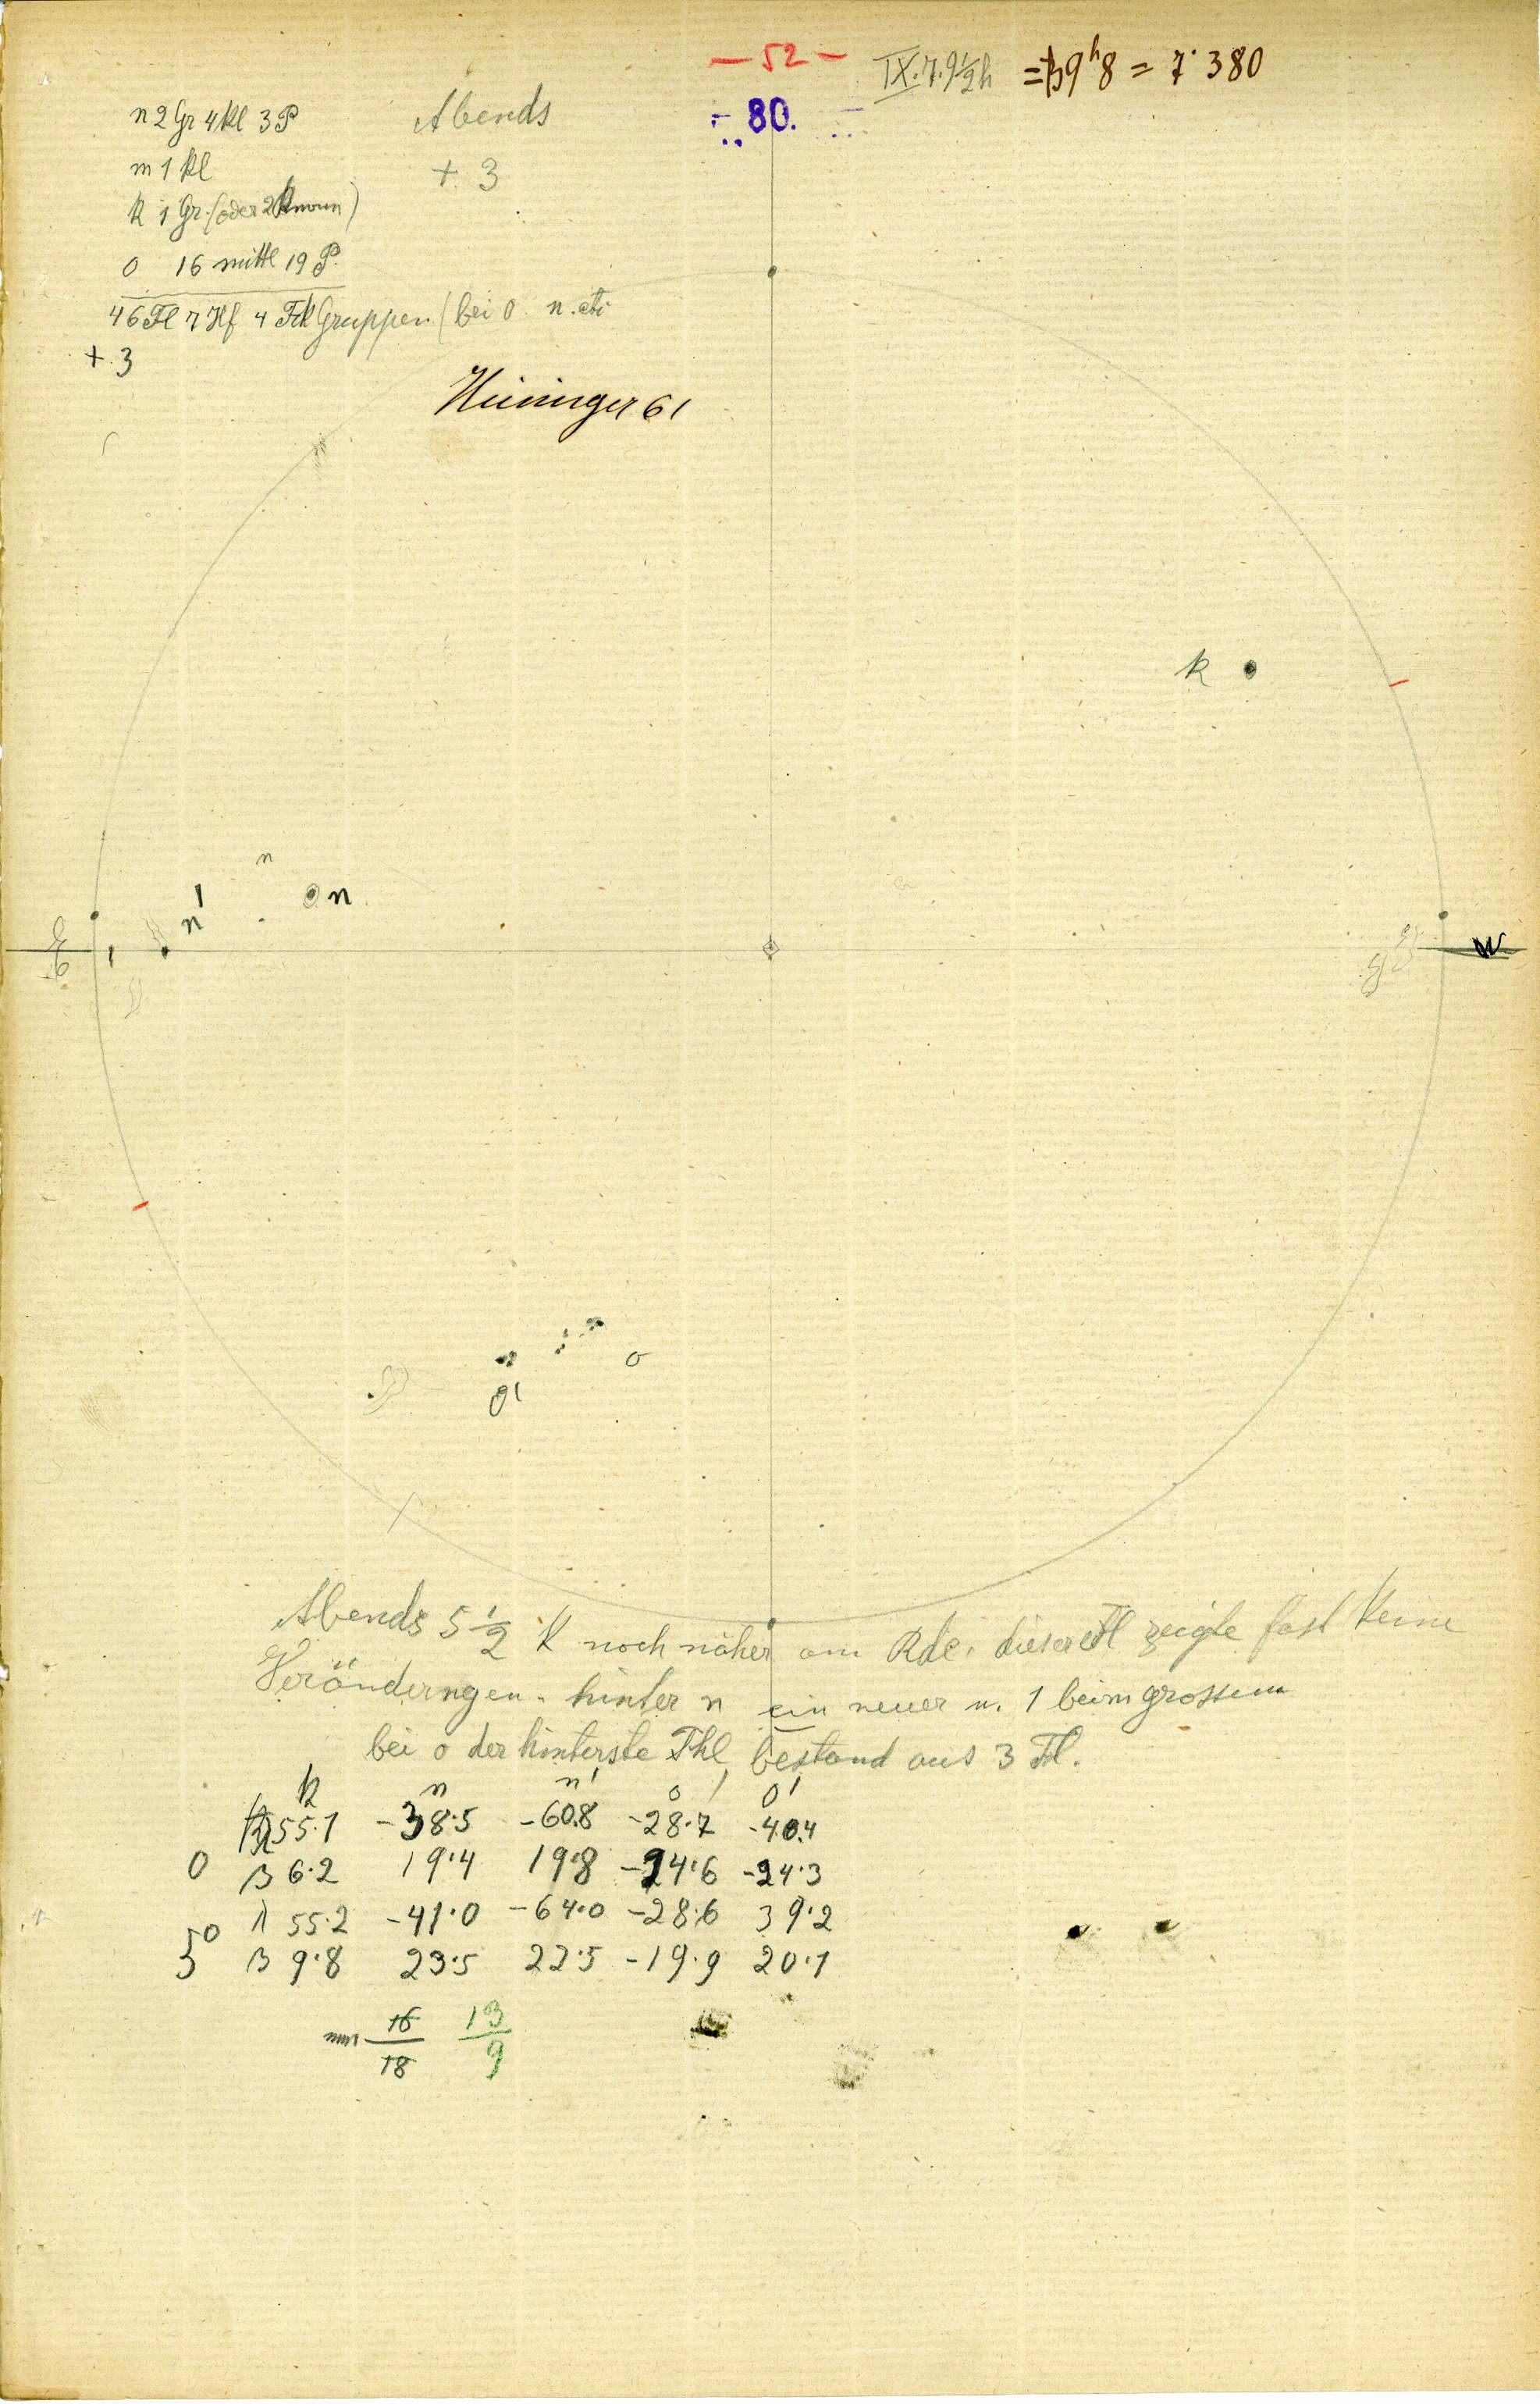 — 52 —
IX. 7. 9 1/2 h = 9h8 = 7·380
80.
n 2 Gr 4 Kl 3 P
Abends
m 1 Kl
+ 3
k 1 Gr. (oder 2 Kl
o 16 mittl 19 P.
46 Fl 7 Hf 4 Gruppen (bei o
+ 3
Heininger 61
k
n
n
n'
W
o
o'
Abends 5 1/2 k noch näher am Rde. dieser Fl zeigte fast keine
Veränderngen. hinter n ein neuer u. 1 beim grossem
bei o der hinterste Thl bestand aus 3 Fl.
k n n' o o'
55·1 -38·5 -60.8 -28·7 -40.4
0 B 6·2 19·4 19·8 -24·6 -24·3
λ 55·2 -41·0 -64·0 -28·6 39·2
5° B 9·8 23·5 22·5 -19·9 20·1
16/18 13/9